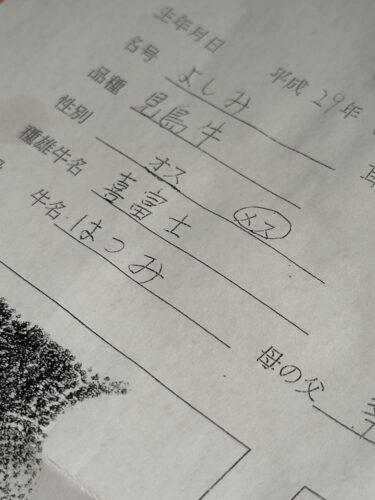 生年月日 平成29年
名号 よしみ
品種 見島牛
性別 オス メス
種雄牛名 喜富士
牛名 はつみ
母の父